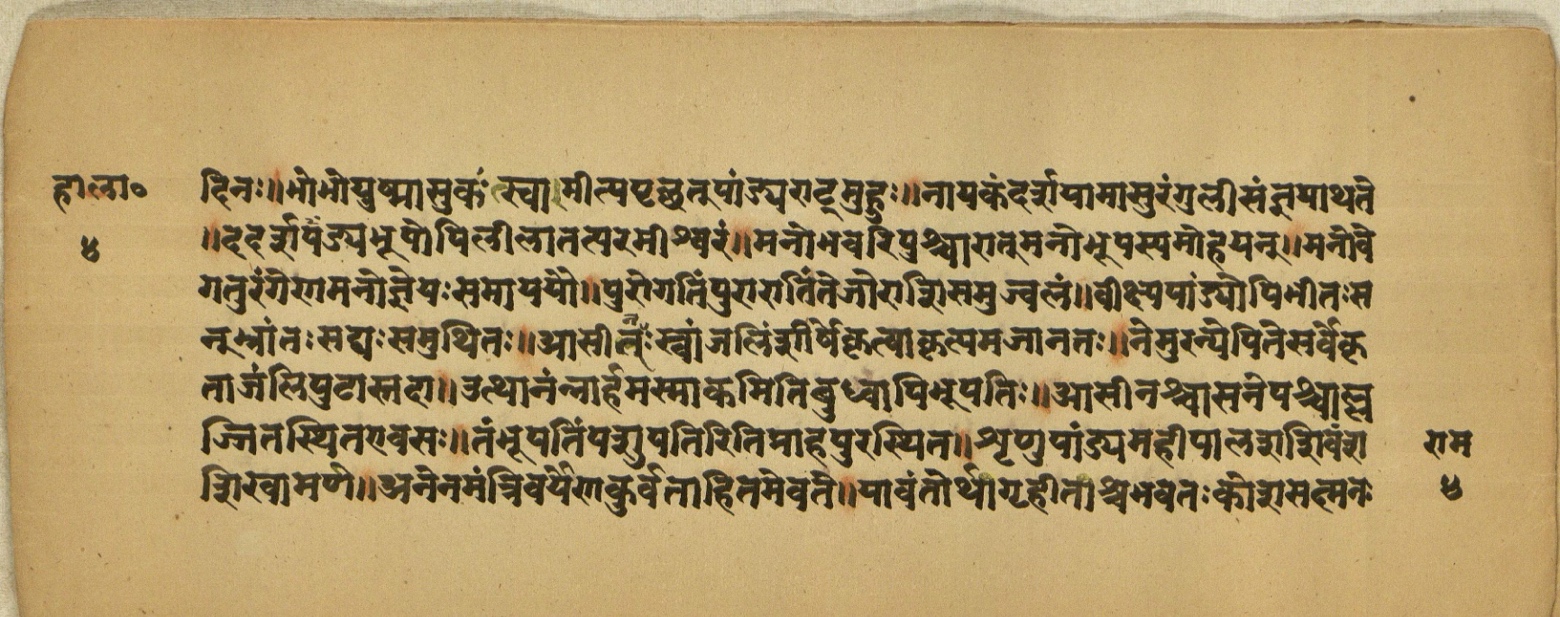 हाला०
५
दिनः॥भोभोयुष्मासुकः स्वामीत्यपृछत्पांड्यराट्मुहुः॥नायकंदर्शयामासुरंगुलीसंज्ञयाथते
॥ददर्शपांड्यभूपोपिलीलातत्परमीश्वरं॥मनोभवरिपुश्चारात्मनोभूपस्यमोहयन्॥मनोवे
गतुरंगेणमनोज्ञेयःसमाययौ॥पुरोगतिंपुरारातिंतेजोराशिसमुज्वलं॥वीक्ष्यपांड्योपिभीतःस
न्भ्रांतःसद्यःसमुथितः॥आसीत्तूःस्वांजलिंशीर्षेकृत्वाकृत्यमजानतः॥नेमुरन्येपितेसर्वेकृ
तांजलिपुटास्तदा॥उत्थानंन्नार्हमस्माकमितिबुध्वापिभूपतिः॥आसीनश्चासनेपश्चाल्ल
ज्जितस्थितएवसः॥तंभूपतिंपशुपतिरितिमाहपुरस्थित॥शृणुपांड्यमहीपालशशिवंश
शिखामणे॥अनेनमंत्रिवर्येणकुर्वताहितमेवते॥यावंतोर्थागृहीताश्चभवतःकोशसत्मनः
राम
५